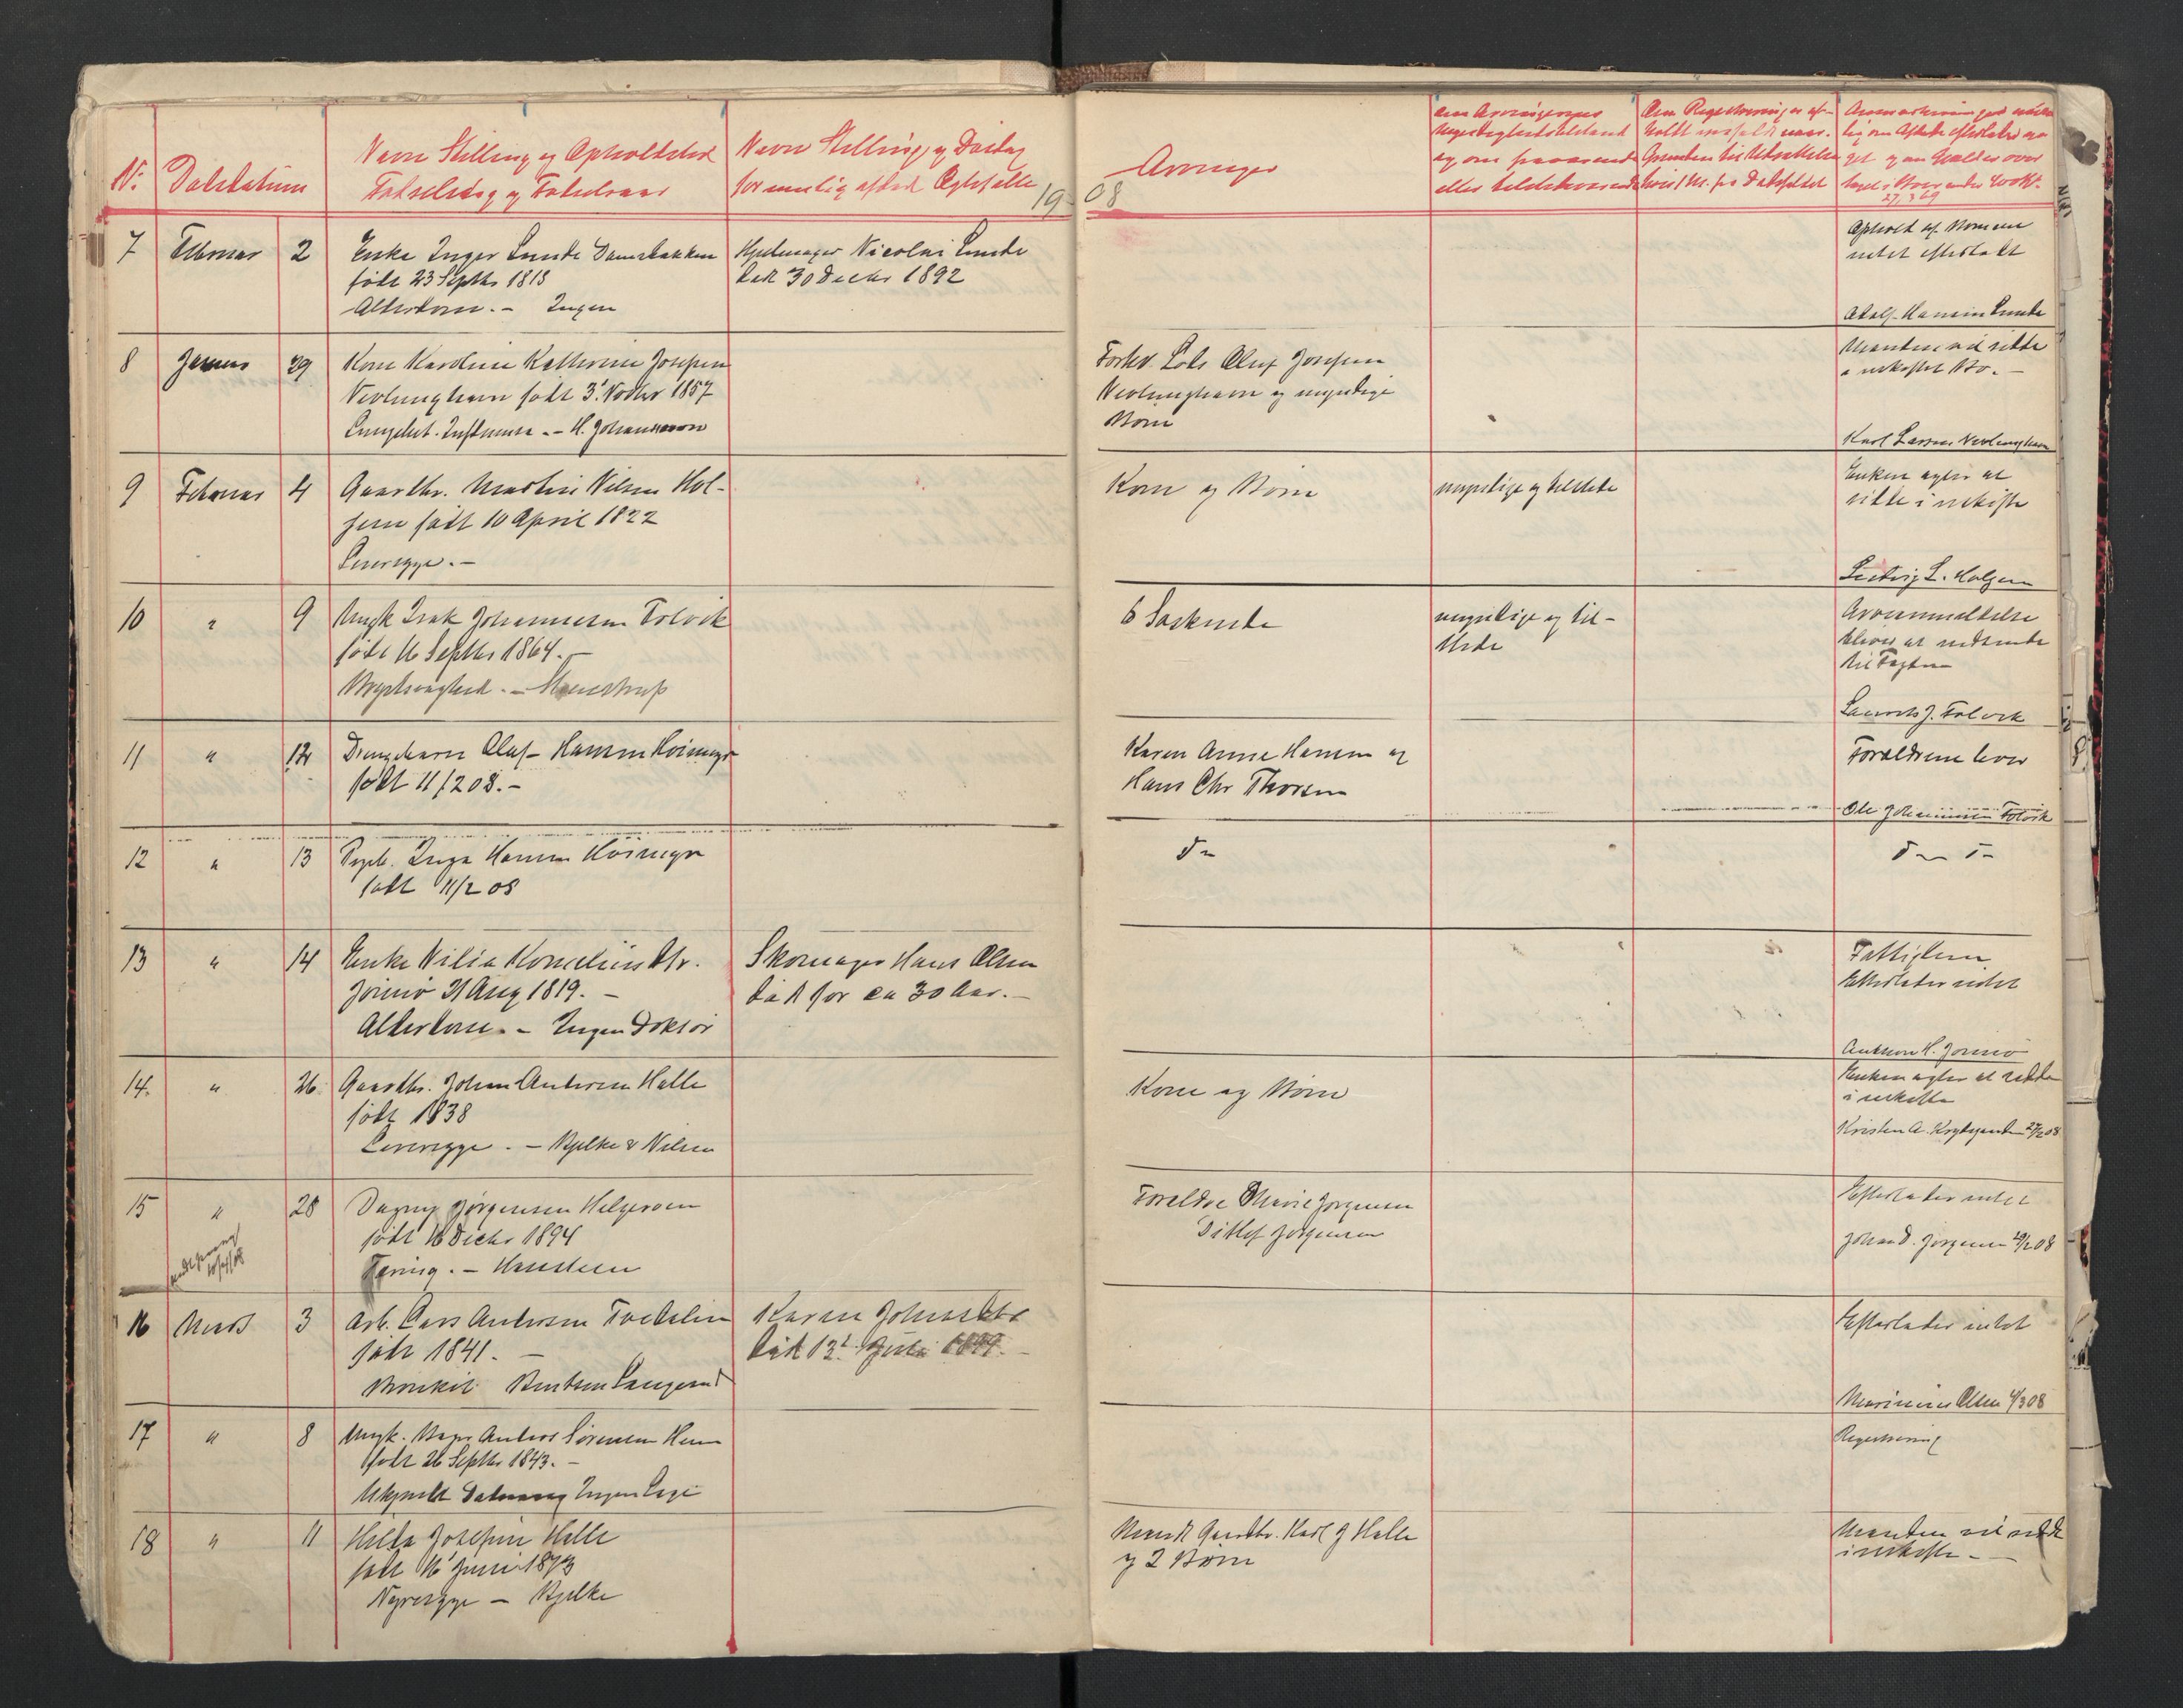 Nr. Dødsdatum
Navn Stilling og Opholdssted
Fødselsdag og Fødselsaar
Navn Stilling og Dødsdag
for mulig afdød Ægtefælle
19 08
Arvinger
Om Arvingernes
Myndighedstilstand
og om fraværende
eller tilstedeværende
Om Registrering er af-
holdt
Grunden til Udsættelse
7 Februar 2 Enke Inger Lunde Damsbakken
født 23 Septbr 1818
Alderdom. - Ingen
Hjulmager Nicolai Lunde
død 30 Decbr 1892
Ophold af Sønnen
intet efterladt
Adolf Hansen Lunde
8 Januar 29 Kone Karoline Kathrine Josefsen
Nevlunghavn født 3 Novbr 1857
Influensa - H. Johannessen
Forhv. Lods Oluf Josefsen
Nevlunghavn og myndige
Børn
Manden vil sidde
i uskiftet Bo. -
Karl Larsen Nevlunghavn
9 Februar 4 Gaardbr. Martin Nilsen Hol-
jem født 10 April 1822
Leversyge. -
Kone og Børn
myndige og tilstede
Enken agter at
sidde i uskifte
Ludvig L. Holjem
10 " 9 Ungk Isak Johannessen Tolvik
født 16 Septbr 1864. -
Brystsyghed. - Steenstrup
6 Søskende
myndige og til-
stede
Arveanmeldelse
bliver at indsende
til Fogden
Laurits J. Tolvik
11 " 12 Drengebarn Oluf Hansen Høimyr
født 11/2 08. -
Karen Anne Hansen og
Hans Chr Thorsen
Forældrene lever
Ole Johannessen Tolvik
12 " 13 Pigeb. Inga Hansen Høimyr
født 11/2 08
do
do do
13 " 14 Enke Nilia Korneliusdtr.
Jønnø 21 Aug 1819. -
Alderdom. - Ingen Doktor
Skomager Hans Olsen
død for ca 30 Aar. -
Fattiglem
Efterlader intet
Anton H. Jønnø
14. " 26 Gaardbr. Johan Andersen Halle
født 1838
Leversyge. - Bjelke & Nilsen
Kone og Børn
Enken agter at sidde
i uskifte
Kristen A. 27/2 08
15 " 28 Dagny Jørgensen Helgeroen
født 16 Decbr 1894
Tæring. - Hansteen
Forældre Marie Jørgensen
Ditlef Jørgensen
Efterlader intet
Johan D. Jørgensen 29/2 08
16 Marts 3 Arb. Lars Andersen Tvedalen
født 1841. -
Bronkit Bentsen Langesund
Karen Johnsdtr
død 13de Juli
Efterlader intet
Marinius Olsen 4/3 08
17 " 8 Ungk. Anders Sørensen Hem
født 26 Septbr 1843. -
Ukjendt Ingen Læge
Registrering
18 " 11 Hilda Josefine Halle
født 16 Juni 1873
Nyresyge - Bjelke
Mand Gaardbr. Karl J Halle
og 2 Børn
Manden vil sidde
i uskifte -